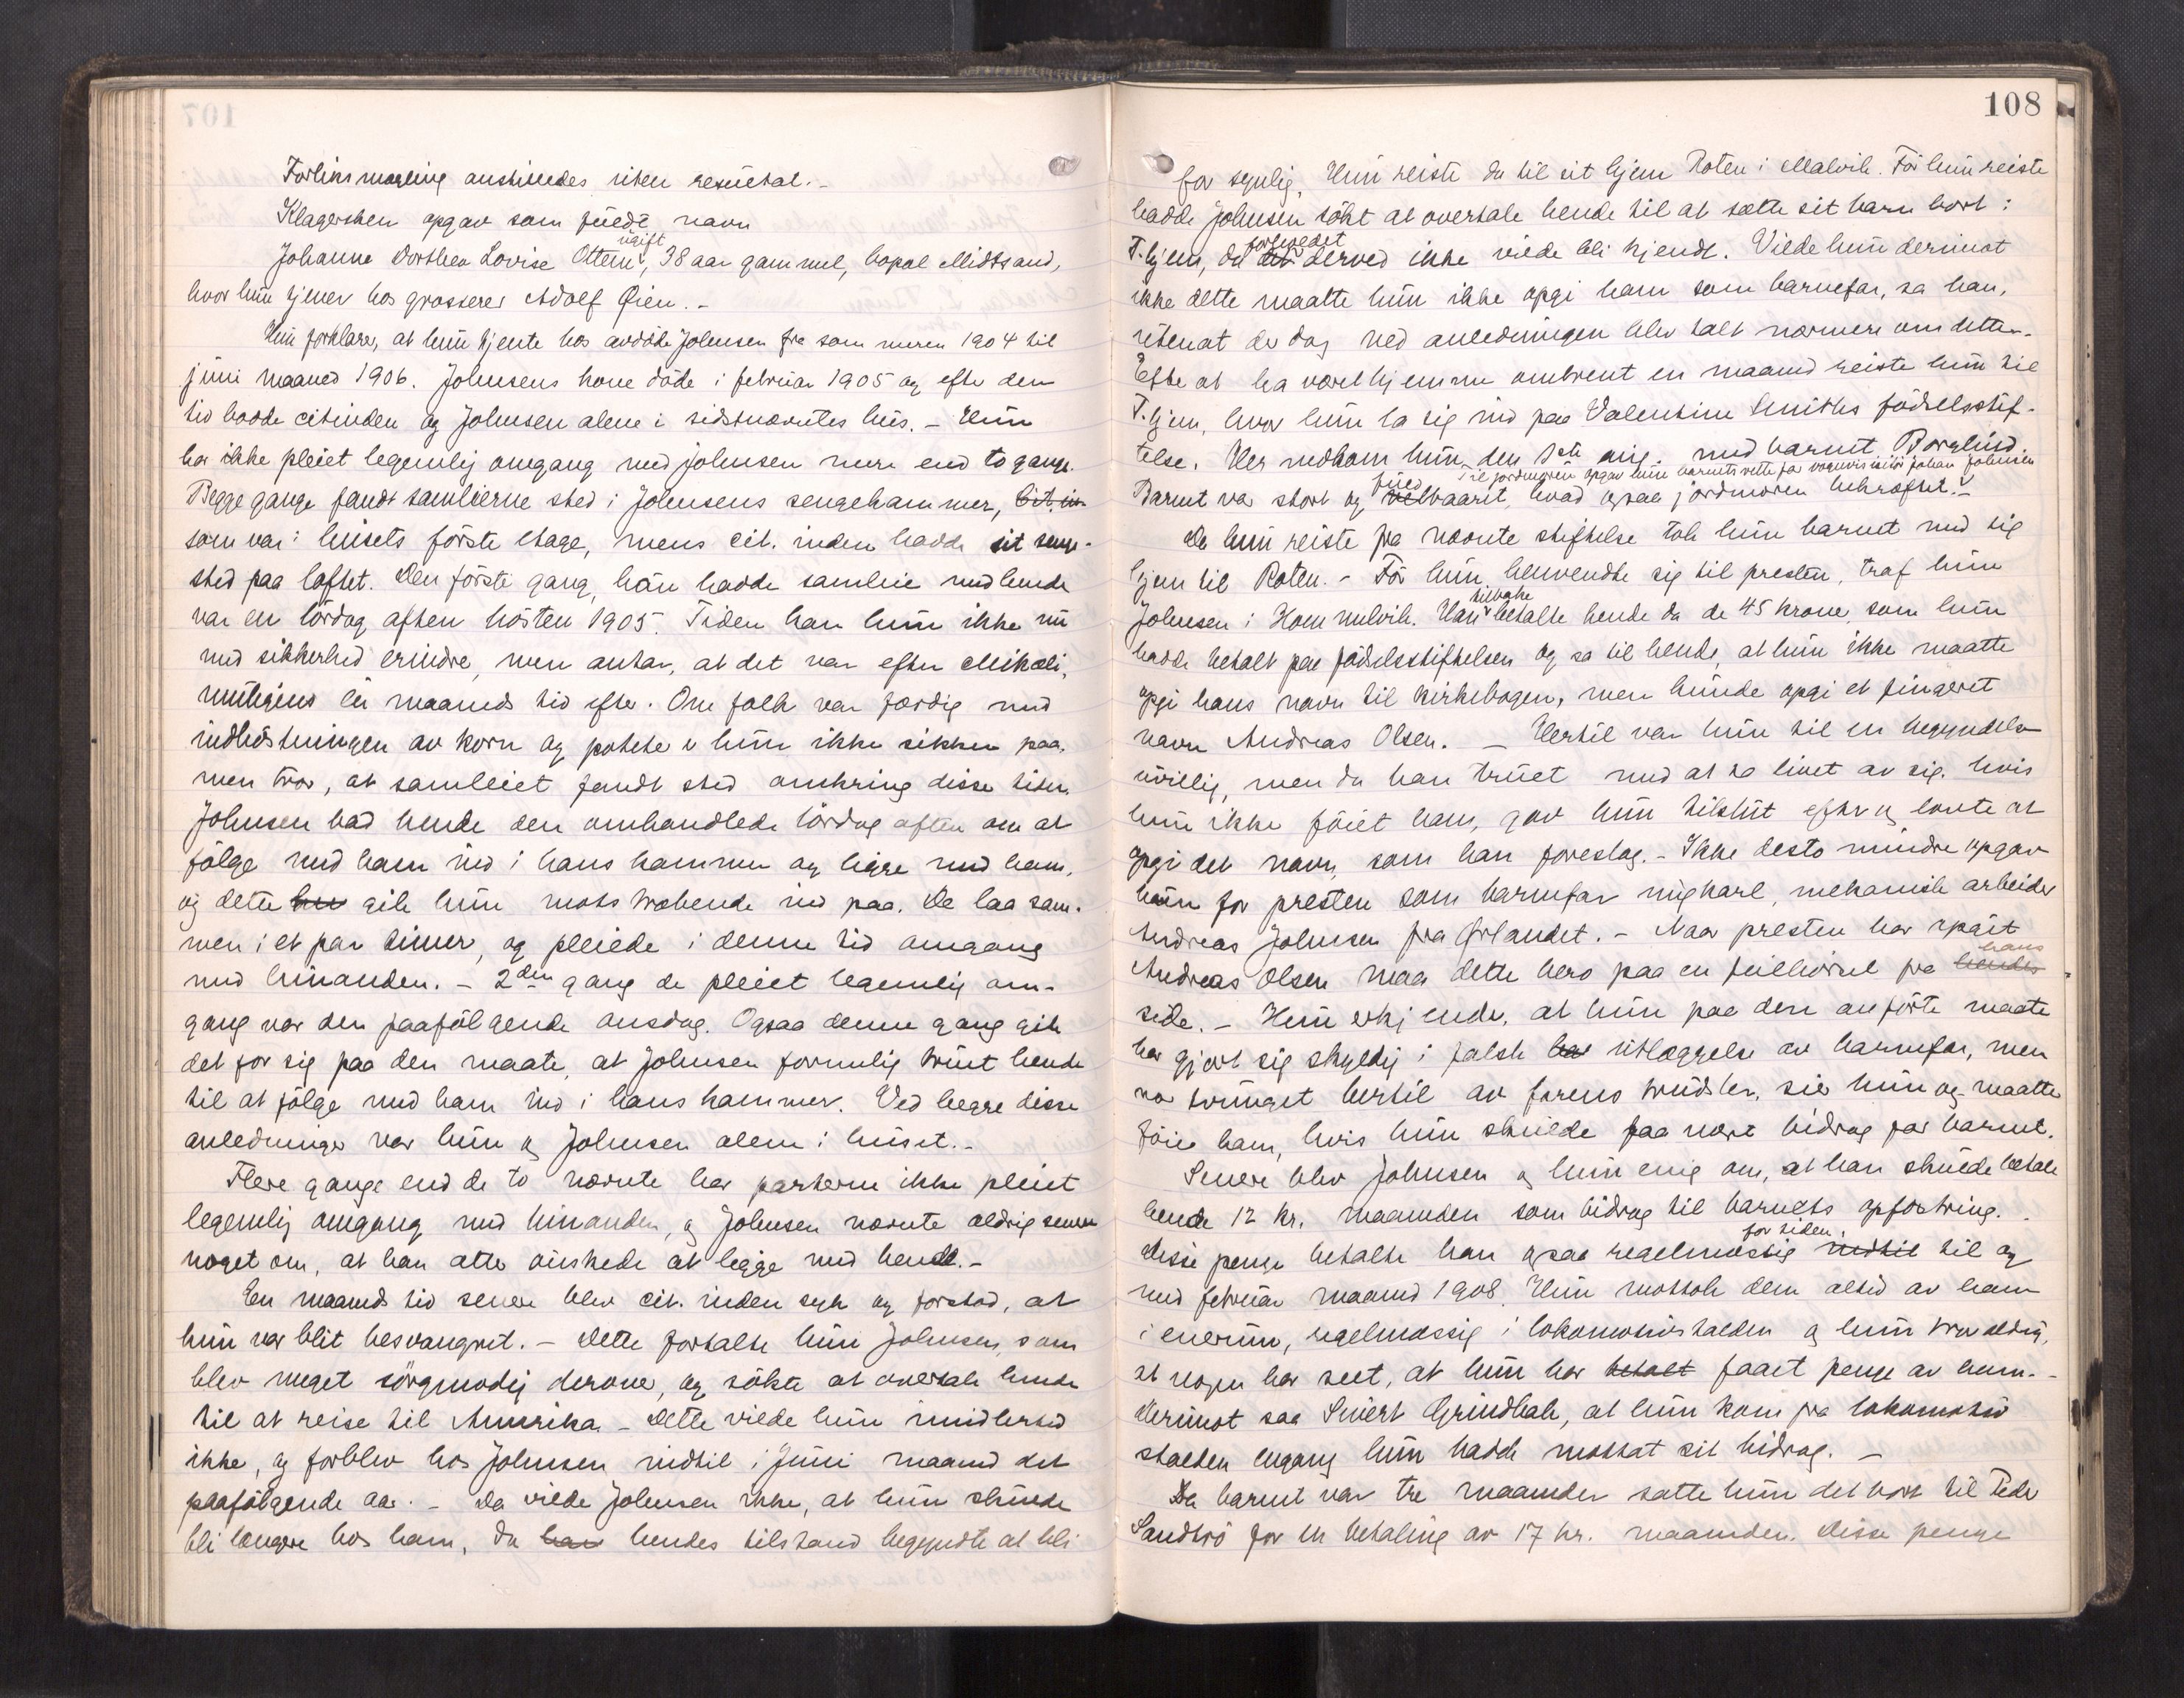 107
Forliksmægling anstilledes uten resultat.-
Klagersken opgav som fuldt navn
ugift
Johanne Dorthea Lovise Ottem, 38 aar gammel, bopæl Midtsand,
hvor hun tjener hos grosserer Adolf Øien.-
Hun forklarer, at hun tjente hos avdøde Johnsen fra sommeren 1904 til
juni maaned 1906. Johnsens kone døde i februar 1905 og efter den
tid bodde citinden og Johnsen alene i sidstnævntes hus. - Hun
har ikke pleiet legemlig omgang med Johnsen mere end to gange.
Begge gange fandt samleierne sted i Johnsens sengekammer, cit. in
som var i husets første etage, mens cit. inden hadde sit senge-
sted paa loftet. Den første gang han hadde samleie med hende
var en lørdag aften høsten 1905. Tiden kan hun ikke nu
med sikkerhed erindre, men antar, at det var efter Mikæli,
muligens en maaneds tid efter. Om folk var færdig med
indhøstningen av korn og poteter er hun ikke sikker paa,
men tror, at samleiet fandt sted omkring disse tider.
Johnsen bad hende den omhandlede lørdag aften om at
følge med ham ind i hans kammer og ligge med ham,
og dette hun gik hun motstræbende ind paa. De laa sam-
men i et par timer, og pleiede i denne tid omgang
med hinanden. - 2den gang de pleiet legemlig om-
gang var den paafølgende onsdag. Ogsaa denne gang gik
det for sig paa den maate, at Johnsen formelig truet hende
til at følge med ham ind i hans kammer. Ved begge disse
anledninger var hun og Johnsen alene i huset.-
Flere gange end de to nævnte har parterne ikke pleiet
legemlig omgang med hinanden, og Johnsen nævnte aldrig senere
noget om, at han atter ønskede at ligge med hende.-
En maaneds tid senere blev cit. inden syk og forstod, at
hun var blit besvangret. - Dette fortalte hun Johnsen, som
blev meget sørgmodig derover, og søkte at overtale hende
til at reise til Amerika - Dette vilde hun imidlertid
ikke, og forblev hos Johnsen indtil i juni maaned det
paafølgende aar. - Da vilde Johnsen ikke, at hun skulde
bli længere hos ham, da han hendes tilstand begyndte at bli
108
for synlig. Hun reiste da til sit hjem Roten i Malvik. Før hun reiste
hadde Johnsen søkt at overtale hende til at sætte sit barn bort i
forholdet
T.hjem, da det derved ikke vilde bli kjendt. Vilde hun derimot
ikke dette maatte hun ikke opgi ham som barnefar, sa han,
uten at der dog ved anledningen blev talt nærmere om dette.-
Efter at ha været hjemme omtrent en maaned reiste hun til
T.hjem, hvor hun la sig ind paa Valentine Smiths fødselsstif-
telse. Her nedkom hun den 1ste aug. med barnet Borglind.
fuld Til jordmoren opgav hun barnets rette far Johan Johnsen
Barnet var stort og velbaaret, hvad ogsaa jordmoren bekræftet.-
Da hun reiste fra nævnte stiftelse tok hun barnet med sig
hjem til Roten. - Før hun henvendte sig til presten, traf hun
tilbake
Johnsen i Hommelvik. Han betalte hende da de 45 krone, som hun
hadde betalt paa fødselsstiftelsen og sa til hende, at hun ikke maatte
opgi hans navn til kirkebogen, men kunde opgi et fingeret
navn Andreas Olsen. - Hertil var hun til en begyndelse
uvillig, men da han truet med at ta livet av sig, hvis
hun ikke føiet ham, gav hun tilslut efter og lovte at
opgi det navn, som han foreslog. - Ikke desto mindre opgav
hun for presten som barnefar ungkarl, mekanisk arbeider
Andreas Johnsen fra Ørlandet. - Naar presten har opgit
hans
Andreas Olsen maa dette bero paa en feilhørsel fra hendes
side. - Hun erkjender, at hun paa den anførte maate
har gjort sig skyldig i falsk bar utlæggelse av barnefar, men
var tvunget hertil av farens trudsler, sier hun og maatte
føie ham, hvis hun skulde faa nært bidrag for barnet.
Senere blev Johnsen og hun enig om, at han skulde betale
hende 12 kr. maaneden som bidrag til barnets opfostring.
for tiden
Disse penge betalte han ogsaa regelmæssig indtil til og
med februar maaned 1908. Hun mottok dem altid av ham
i enerum, regelmæssig i lokomotivstalden og hun tror aldrig,
at nogen har seet, at hun har betalt faaet penge av ham. -
Derimot saa Sivert Grindbak, at hun kom fra lokomotiv
stalden engang hun hadde mottat sit bidrag. -
Da barnet var tre maaneder satte hun det bort til Peder
Sandtrø for en betaling av 17 kr. maaneden. Disse penge